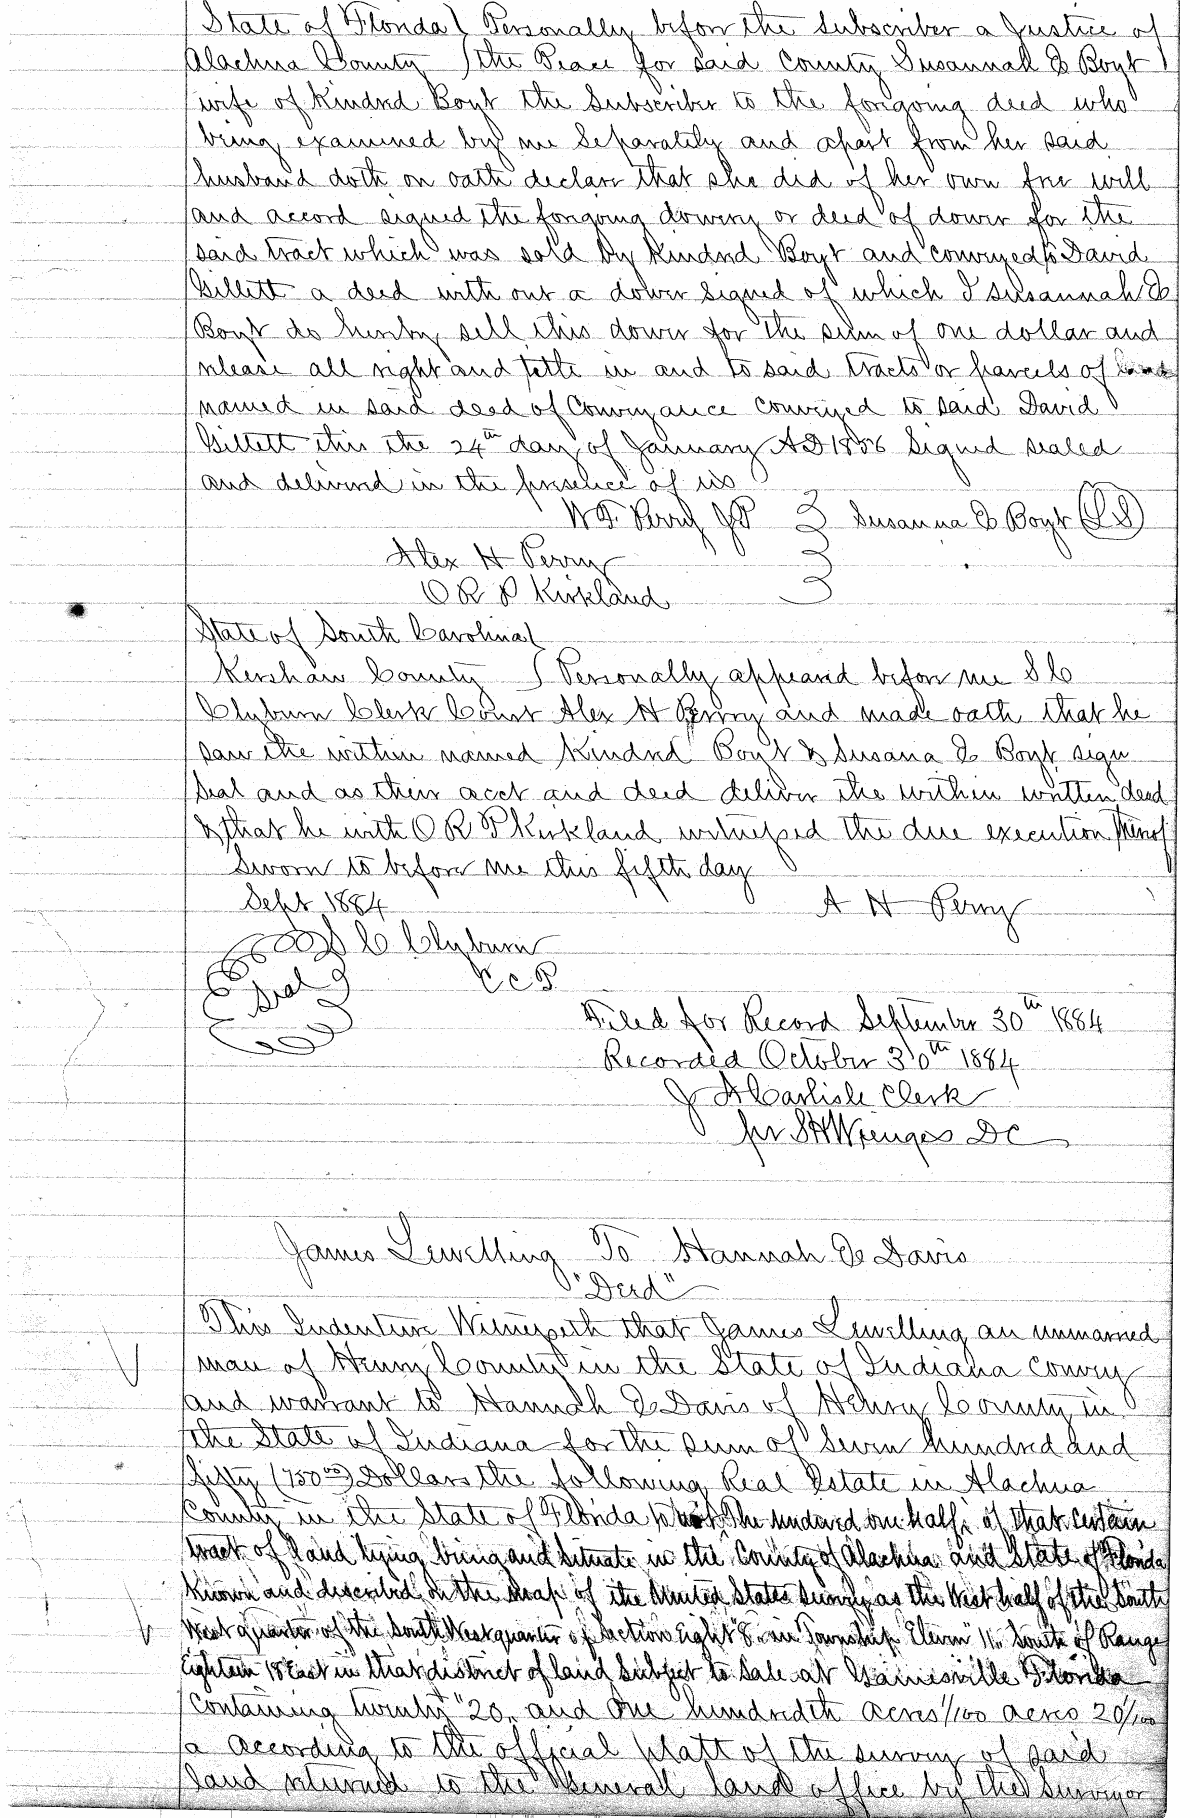 State of Florida } Personally before the Subscriber a Justice of
Alachua County } the Peace for said County Susannah E Boyt
wife of Kindred Boyt the Subscriber to the foregoing deed who
being examined by me Separately and apart from her said
husband doth on oath declare that she did of her own free will
and accord signed the foregoing dowery or deed of dower for the
said tract which was sold by Kindred Boyt and conveyed to David
Gillett a deed with out a dower signed of which I Susannah E
Boyt do hereby sell this dower for the sum of one dollar and
release all right and title in and to said tracts or parcels of land
named in said deed of Conveyance conveyed to said David
Gillett this the 24th day of January AD 1856 Signed sealed
and delivered in the presence of us
W F Perry JP } Susanna E Boyt (LS)
Alex H Perry }
O R P Kirkland }
State of South Carolina }
Kershaw County } Personally appeared before me S C
Clyburn Clerk Court Alex H Perry and made oath that he
saw the within named Kindred Boyt & Susana E Boyt sign
Seal and as their acct and deed deliver the within written deed
& that he with O R P Kirkland witnessed the due execution thereof
Sworn to before me this fifth day
Sept 1884 A H Perry
S C Clyburn
Seal C C P
Filed for Record September 30th 1884
Recorded October 30th 1884
J A Carlisle Clerk
per S H Wienges DC
James Lewelling To Hannah E Davis
"Deed"
This Indenture Witnesseth that James Lewelling an unmarried
man of Henry County in the State of Indiana convey
and warrant to Hannah E Davis of Henry County in
the State of Indiana for the sum of Seven hundred and
fifty (750 00) Dollars the following Real Estate in Alachua
County in the State of Florida to wit, The undevid one half of that certain
tract of land lying being and situate in the County of Alachua and State of Florida
Known and described on the map of the United States Survey as the West half of the South
West quarter of the South West quarter of Section Eight "8" in Township Eleven "11" South of Range
Eighteen 18 East in that district of land Subject to Sale at Gainesville Florida
Containing twenty "20" and One hundredth acres 1/100 acres 20 1/100
a according to the official platt of the survey of said
land returned to the General land office by the Surveyor